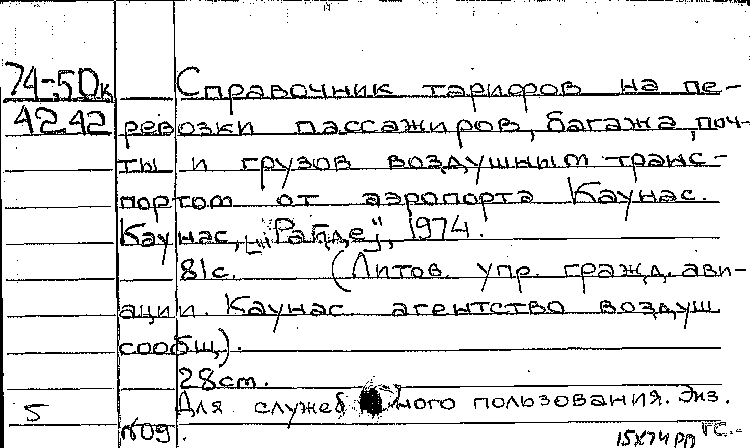 74-50к Справочник тарифов на пе-
42.42 ревозки пассажиров, багажа, поч-
ты и грузов воздушным транс-
портом от аэропорта Каунас.
Каунас, "Райде", 1974.
81с. (Литов. упр. гражд. ави-
ации. Каунас. агентство воздуш
сообщ.).
28cm.
5 Для служебного пользования. Экз.
№09.